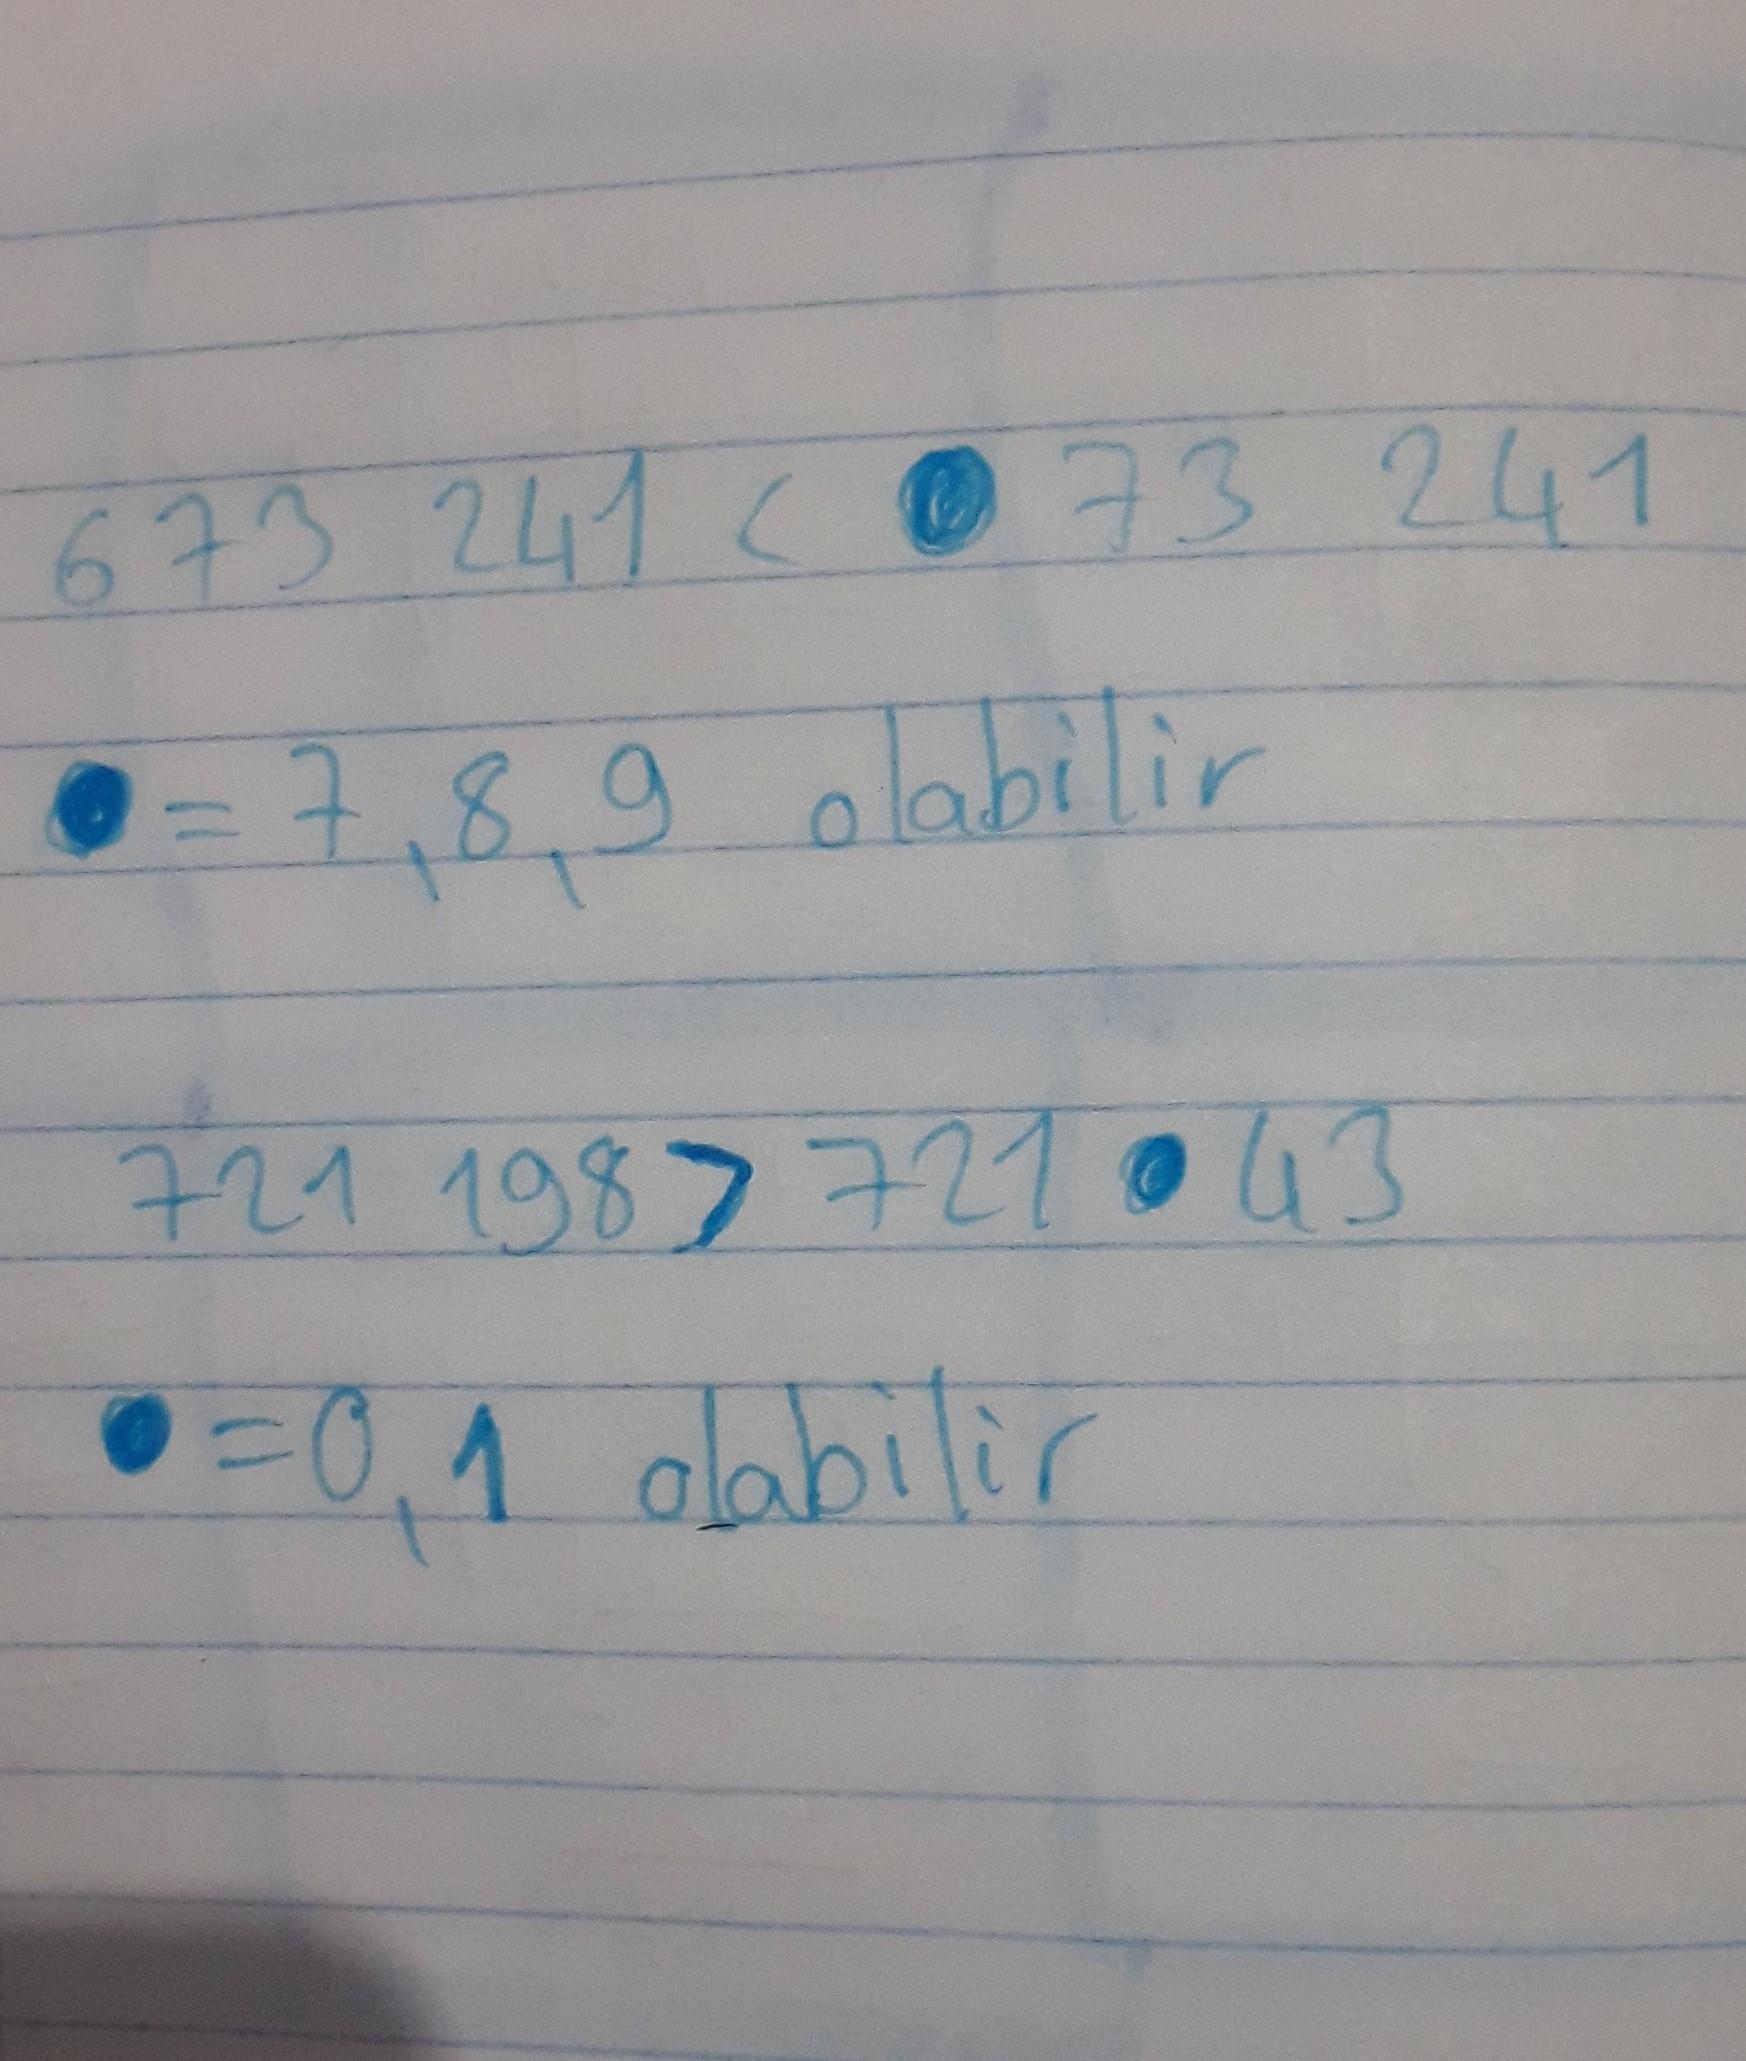 673 241 < ● 73 241
● = 7, 8, 9 olabilir
721 198 > 721 ● 43
● = 0, 1 olabilir